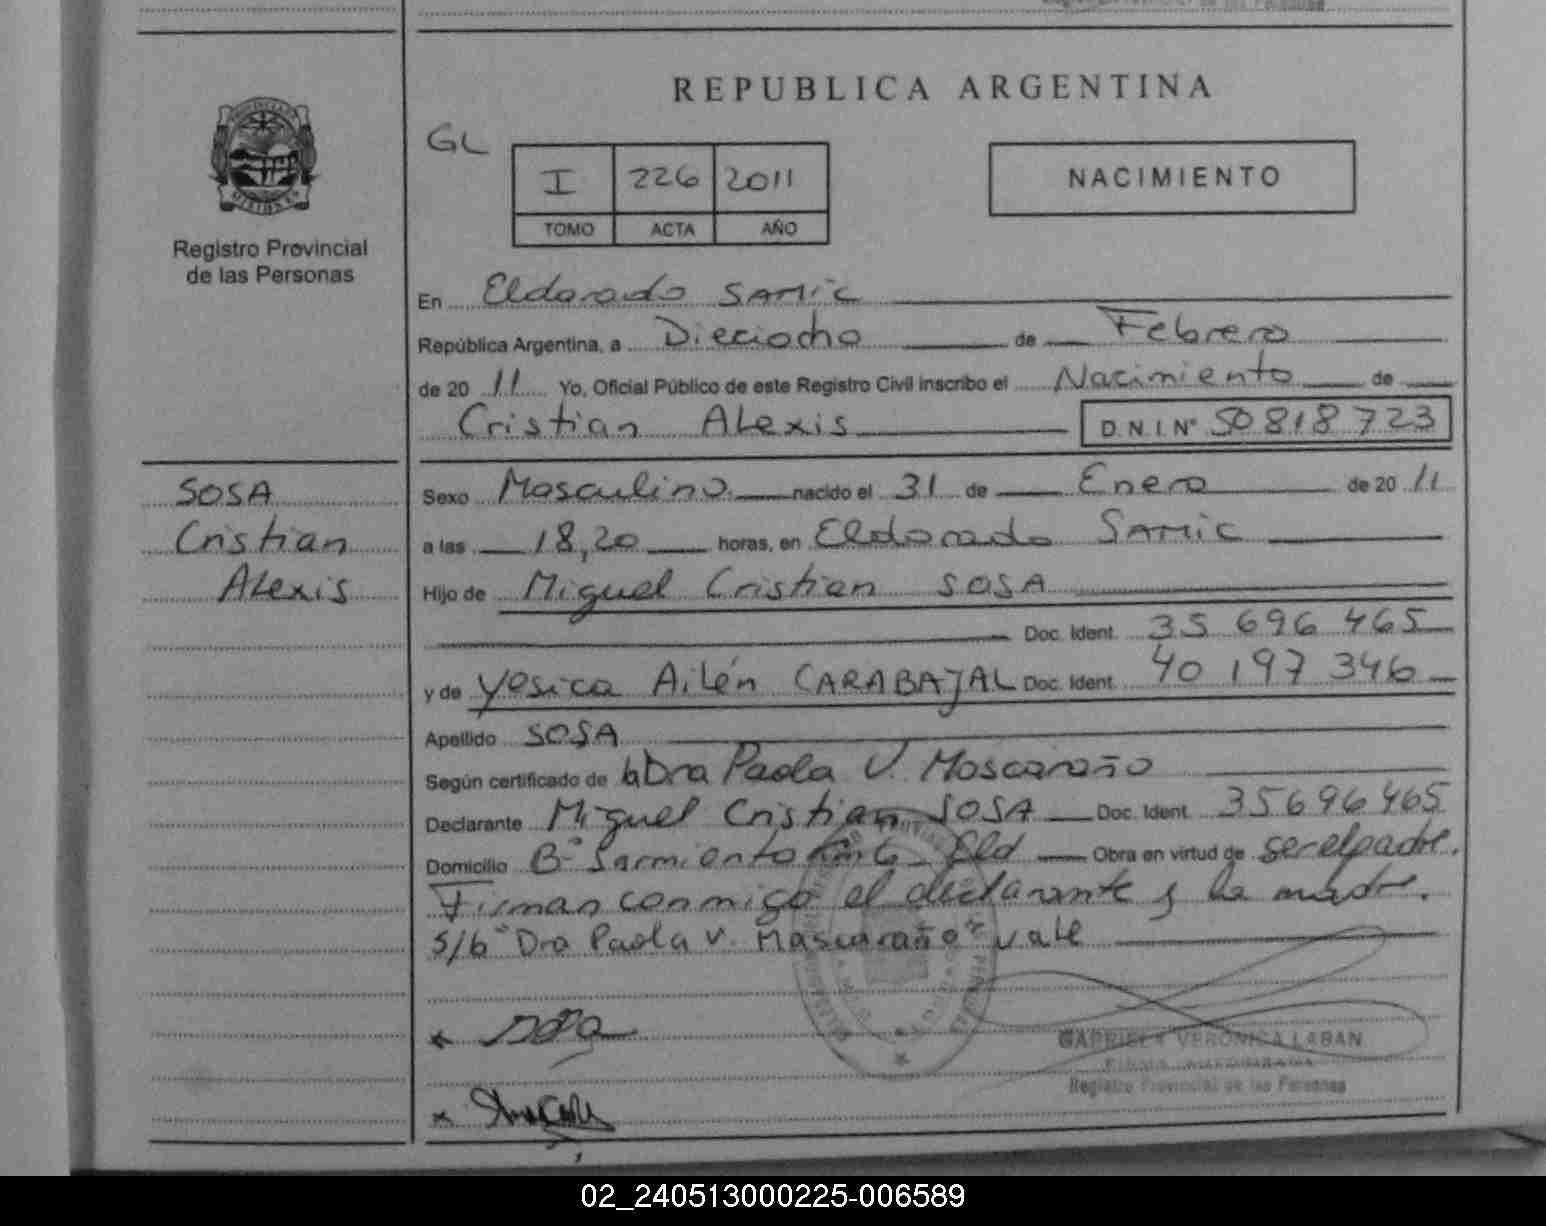 REPUBLICA ARGENTINA
GL
I 226 2011
TOMO ACTA AÑO
NACIMIENTO
Registro Provincial
de las Personas
En Eldorado SAMIC
República Argentina, a Dieciocho de Febrero
de 20 11 Yo, Oficial Público de este Registro Civil inscribo el Nacimiento de
Cristian Alexis D.N.I. Nº 50 818 723
SOSA
Cristian
Alexis
Sexo Masculino nacido el 31 de Enero de 20 11
a las 18,20 horas, en Eldorado SAMIC
Hijo de Miguel Cristian SOSA
Doc. Ident. 35 696 465
y de Yesica Ailén CARABAJAL Doc. Ident. 40 197 346
Apellido SOSA
Según certificado de la Dra Paola V. Moscaraño
Declarante Miguel Cristian SOSA Doc. Ident. 35696465
Domicilio Bº Sarmiento Km 6 Eld Obra en virtud de ser el padre.
Firman conmigo el declarante y la madre.
S/b "Dra Paola V. Mascaraño" vale
GABRIELA VERONICA LABAN
FIRMA AUTORIZADA
Registro Provincial de las Personas
02_240513000225-006589